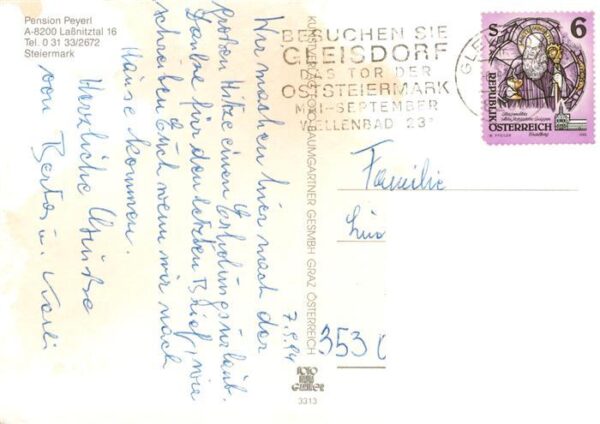 Pension Peyerl
A-8200 Laßnitztal 16
Tel. 0 31 33/2672
Steiermark
7.9.94
Wir machen hier nach der
großen Hitze einen Erholungsurlaub.
Danke für den letzten Brief, wir
schreiben Euch wenn wir nach
Hause kommen.
Herzliche Grüße
von Berta u. Karli
KUNSTVERLAG FOTO BAUMGARTNER GESMBH GRAZ ÖSTERREICH
3313
BESUCHEN SIE
GLEISDORF
DAS TOR DER
OSTSTEIERMARK
MAI-SEPTEMBER
WELLENBAD 23°
GLEI
S 6
REPUBLIK
ÖSTERREICH
Familie
353